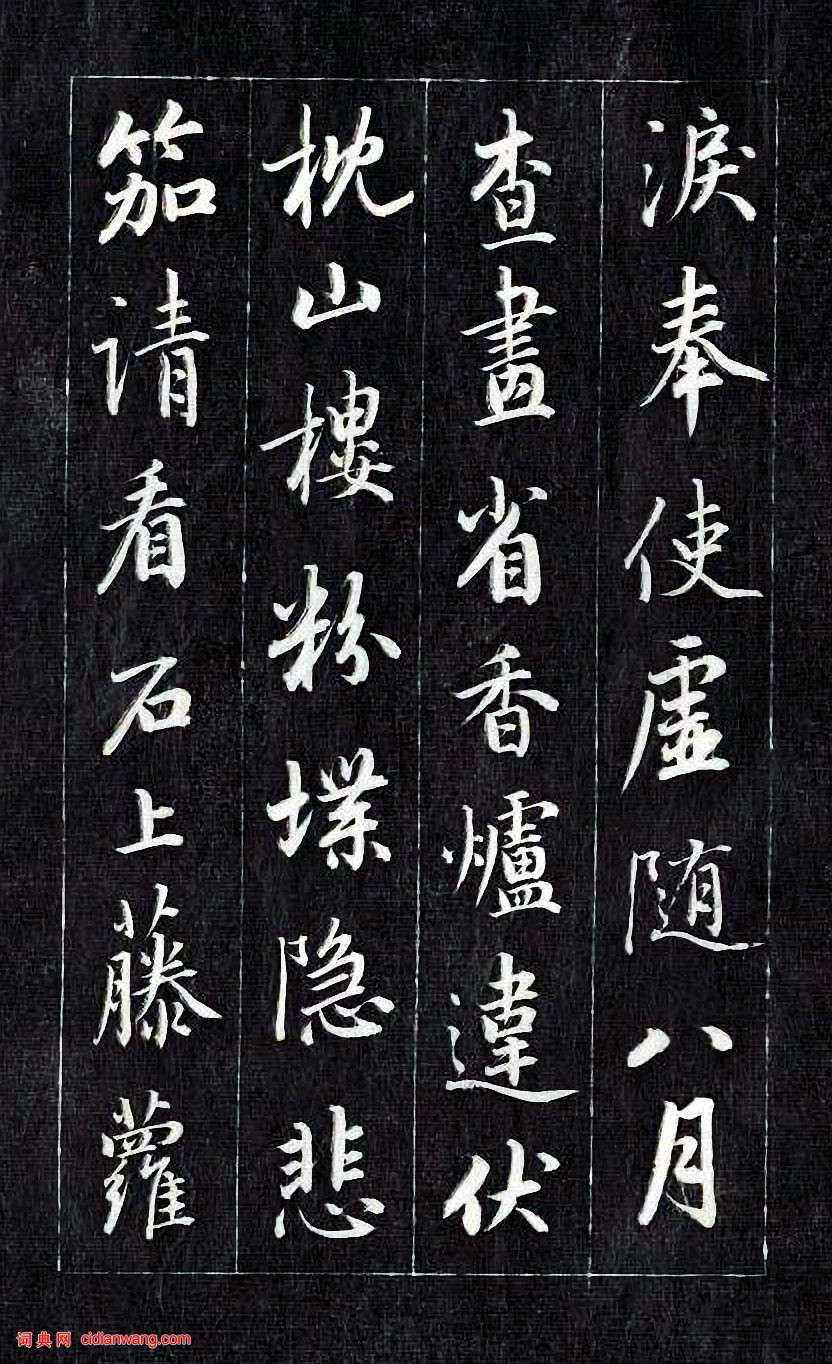 淚奉使虛随八月
查畫省香爐違伏
枕山樓粉堞隐悲
笳请看石上藤蘿
词典网 cidianwang.com